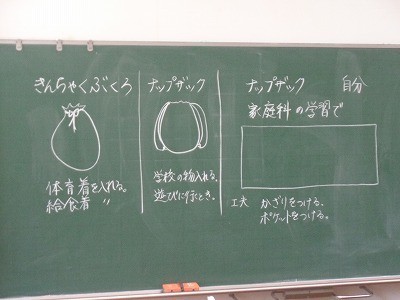 きんちゃくぶくろ
体育着を入れる。
給食着 〃
ナップザック
学校の物入れる。
遊びに行くとき。
ナップザック 自分
家庭科の学習で
工夫 かざりをつける。
ポケットをつける。